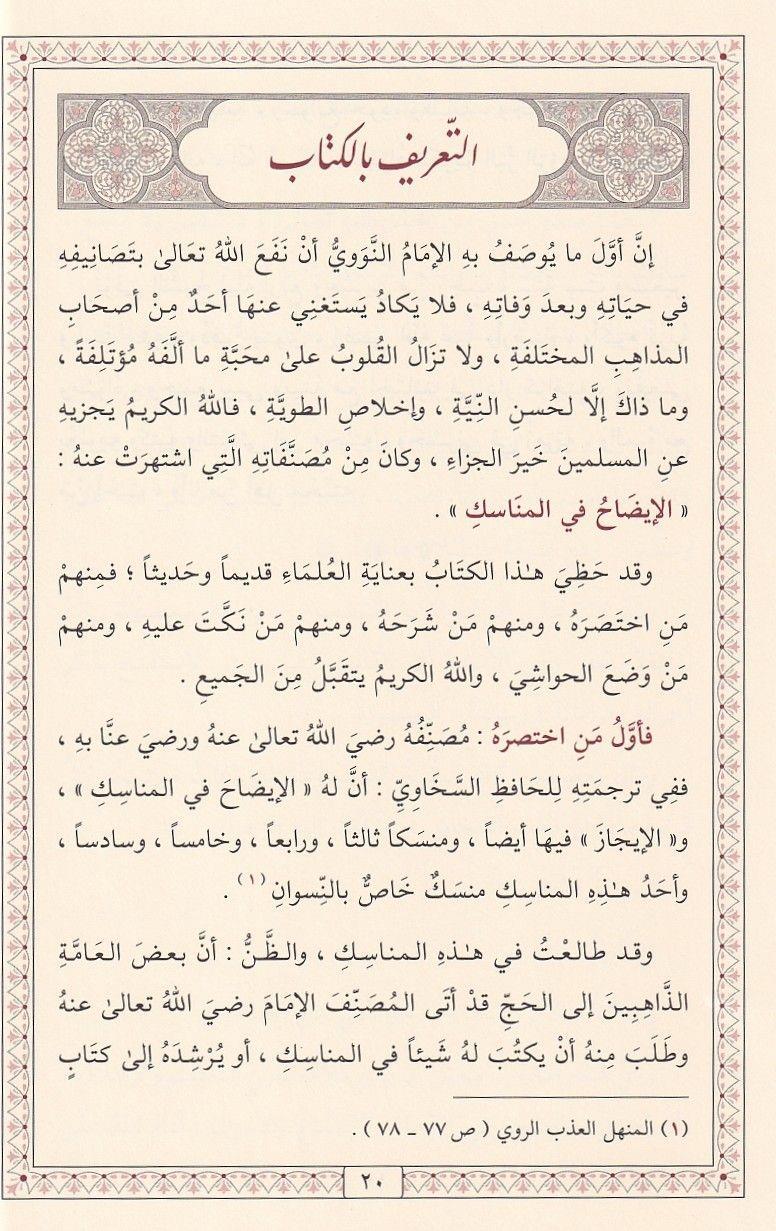 التّعريف بالكتاب
إنَّ أوَّلَ ما يُوصَفُ بهِ الإمَامُ النَّوَوِيُّ أنْ نَفَعَ اللهُ تعَالىٰ بتَصَانِيفِهِ
في حيَاتِهِ وبعدَ وَفاتِهِ ، فلا يَكادُ يَستَغنِي عنهَا أحَدٌ مِنْ أصحَابِ
المذاهِبِ المختَلفَةِ ، ولا تزَالُ القُلوبُ علىٰ محَبَّةِ ما ألَّفَهُ مُؤتَلِفَةً ،
وما ذاكَ إلَّا لحُسنِ النِّيَّةِ ، وإخلاصِ الطويَّةِ ، فاللهُ الكريمُ يَجزيهِ
عنِ المسلمينَ خَيرَ الجزاءِ ، وكانَ مِنْ مُصَنَّفَاتِهِ الَّتِي اشتهرَتْ عنهُ :
« الإيضَاحُ في المنَاسكِ » .
وقد حَظِيَ هـٰذا الكتَابُ بعنايَةِ العُلمَاءِ قديماً وحَديثاً ؛ فمِنهمْ
مَنِ اختَصَرَهُ ، ومنهمْ مَنْ شَرَحَهُ ، ومنهمْ مَنْ نَكَّتَ عليهِ ، ومنهمْ
مَنْ وَضَعَ الحواشِيَ ، واللهُ الكريمُ يتقَبَّلُ مِنَ الجَميعِ .
فأوَّلُ مَنِ اختصرَهُ : مُصَنِّفُهُ رضيَ اللهُ تعالىٰ عنهُ ورضيَ عنَّا بهِ ،
ففِي ترجمَتِهِ لِلحَافظِ السَّخَاوِيِّ : أنَّ لهُ « الإيضَاحَ في المناسِكِ » ،
و« الإيجَازَ » فيهَا أيضاً ، ومنسَكاً ثالثاً ، ورابعاً ، وخامساً ، وسادساً ،
وأحَدُ هـٰذِهِ المناسِكِ منسَكٌ خَاصٌّ بالنِّسوانِ (١) .
وقد طالعْتُ في هـٰذهِ المناسِكِ ، والظَّنُّ : أنَّ بعضَ العَامَّةِ
الذَّاهِبِينَ إلى الحَجِّ قدْ أتَى المُصَنِّفَ الإمَامَ رضيَ اللهُ تعالىٰ عنهُ
وطَلَبَ مِنهُ أنْ يكتُبَ لهُ شَيئاً في المناسِكِ ، أو يُرْشِدَهُ إلىٰ كتَابٍ
(١) المنهل العذب الروي ( ص ٧٧ ـ ٧٨ ) .
٢٠